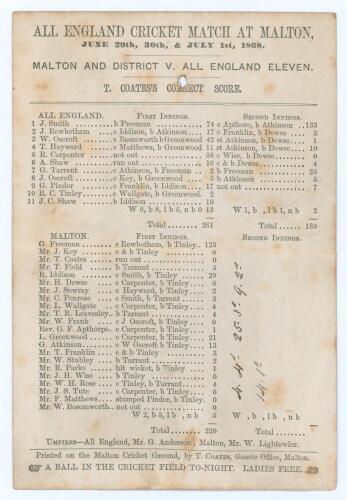 ALL ENGLAND CRICKET MATCH AT MALTON,
JUNE 29th, 30th, & JULY 1st, 1868.
MALTON AND DISTRICT V. ALL ENGLAND ELEVEN.
T. COATES'S CORRECT SCORE.
ALL ENGLAND. FIRST INNINGS. SECOND INNINGS.
1 J. Smith b Freeman 74 c Apthore, b Atkinson 133
2 J. Rowbotham c Iddison, b Atkinson 17 c Franklin, b Dewse 2
3 W. Oscroft c Bosomworth b Greenwood 42 st Atkinson, b Dewse 1
4 T. Hayward c Matthews, b Greenwood 11 st Atkinson, b Dewse 10
5 R. Carpenter not out 58 c Wise, b Dewse 0
6 A. Shaw run out 10 c & b Dewse 4
7 G. Tarrant c Atkinson, b Freeman 2 b Freeman 25
8 J. Oscroft c Key, b Greenwood 5 b Atkinson 5
9 G. Pinder c Franklin, b Iddison 17 not out 7
10 R. C. Tinley c Wallgate, b Greenwood 2
11 J. C. Shaw b Iddison 10
W 6, b 5, l b 5, n b 0 13 W 1, b , l b 1, n b 2
Total 261 Total 189
MALTON. FIRST INNINGS. SECOND INNINGS.
G. Freeman c Rowbotham, b Tinley 123
Mr. J. Key c & b Tinley 0
Mr. T. Coates run out 0
Mr. T. Field b Tarrant 5
R. Iddison c Smith, b Tinley 29
Mr. H. Dewse c Carpenter, b Tinley 0
Mr. J. Sowray c Hayward, b Tinley 2
Mr. C. Penrose c Smith, b Tarrant 3
Mr. L. Wallgate c Carpenter, b Tinley 4
Mr. T. R. Leavesley b Tarrant 4
Mr. W. Frank c J Oscroft, b Tinley 0
Rev. G. F. Apthorpe c Carpenter, b Tinley 0
L. Greenwood c Carpenter, b Tinley 21
G. Atkinson c W Oscroft b Tinley 13
Mr. T. Franklin c & b Tinley 3
Mr. W. Stubley b Tarrant 2
Mr. R. Parke hit wicket, b Tinley 1
Mr. J. H. Wise b Tinley 0
Mr. W. H. Rose c Tinley, b Tarrant 4
Mr. J. S. Tute c Carpenter, b Tinley 0
Mr. F. Matthews stumped Pinder, b Tinley 0
Mr. W. Bosomworth not out 0
W 2, b 3, l b , n b 5 W , b , l b , n b
Total 220 Total
UMPIRES—All England, Mr. G. Anderson; Malton, Mr. W. Lightowler.
Printed on the Malton Cricket Ground, by T. COATES, Gazette Office, Malton.
A BALL IN THE CRICKET FIELD TO-NIGHT. LADIES FREE.